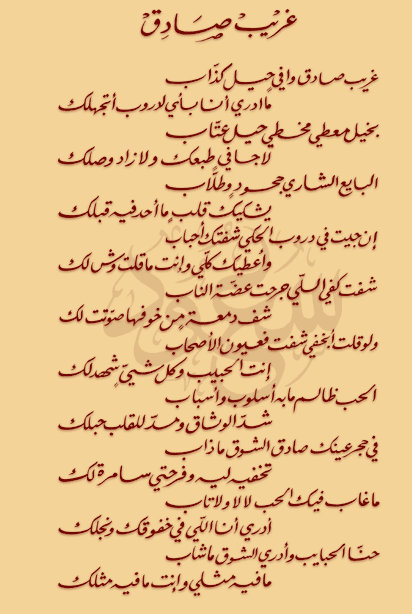 غريب صادق
غريب صادق وافي حيل كذّاب
ماادري أنا بأي لدروب أتجهلك
بخيل معطي مخطي حيل عتّاب
لاجا في طبعك ولازاد وصلك
البايع الشاري جحودٍ وطلّاب
يشكيك قلبٍ ماأحدٍ فيه قبلك
إن جيت في دروب الحكي شفتك أجناب
وأعطيك كلّي وإنت ماقلت وش لك
شفت كفي اللّي جرحت عضّة الناب
شف دمعةٍ من خوفها صوّتت لك
ولو قلت أبخفي شفت فعيون الأصحاب
إنت الحبيب وكل شيّ شهد لك
الحب ظالم مابه أسلوب وأسباب
شدّ الوثاق ومدّ للقلب حبلك
في حجر عينك صادق الشوق ماذاب
تخفيه ليه وفرحتي سامرة لك
ماغاب فيك الحب لا لا ولا تاب
أدري أنا اللّي في خفوقك ونجلك
حنّا الحبايب وأدري الشوق ماشاب
مافيه مثلي وإنت مافيه مثلك